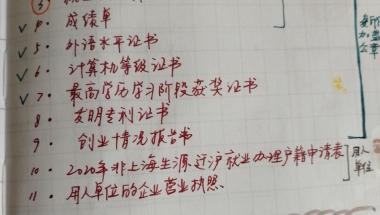 √ 4. 成绩单
√ 5. 外语水平证书
√ 6. 计算机等级证书
√ 7. 最高学历学习阶段获奖证书
8. 发明专利证书
9. 创业情况报告书
10. 2020年非上海生源迁沪就业办理户籍申请表
11. 用人单位的企业营业执照.
用人
单位
加盖
公章